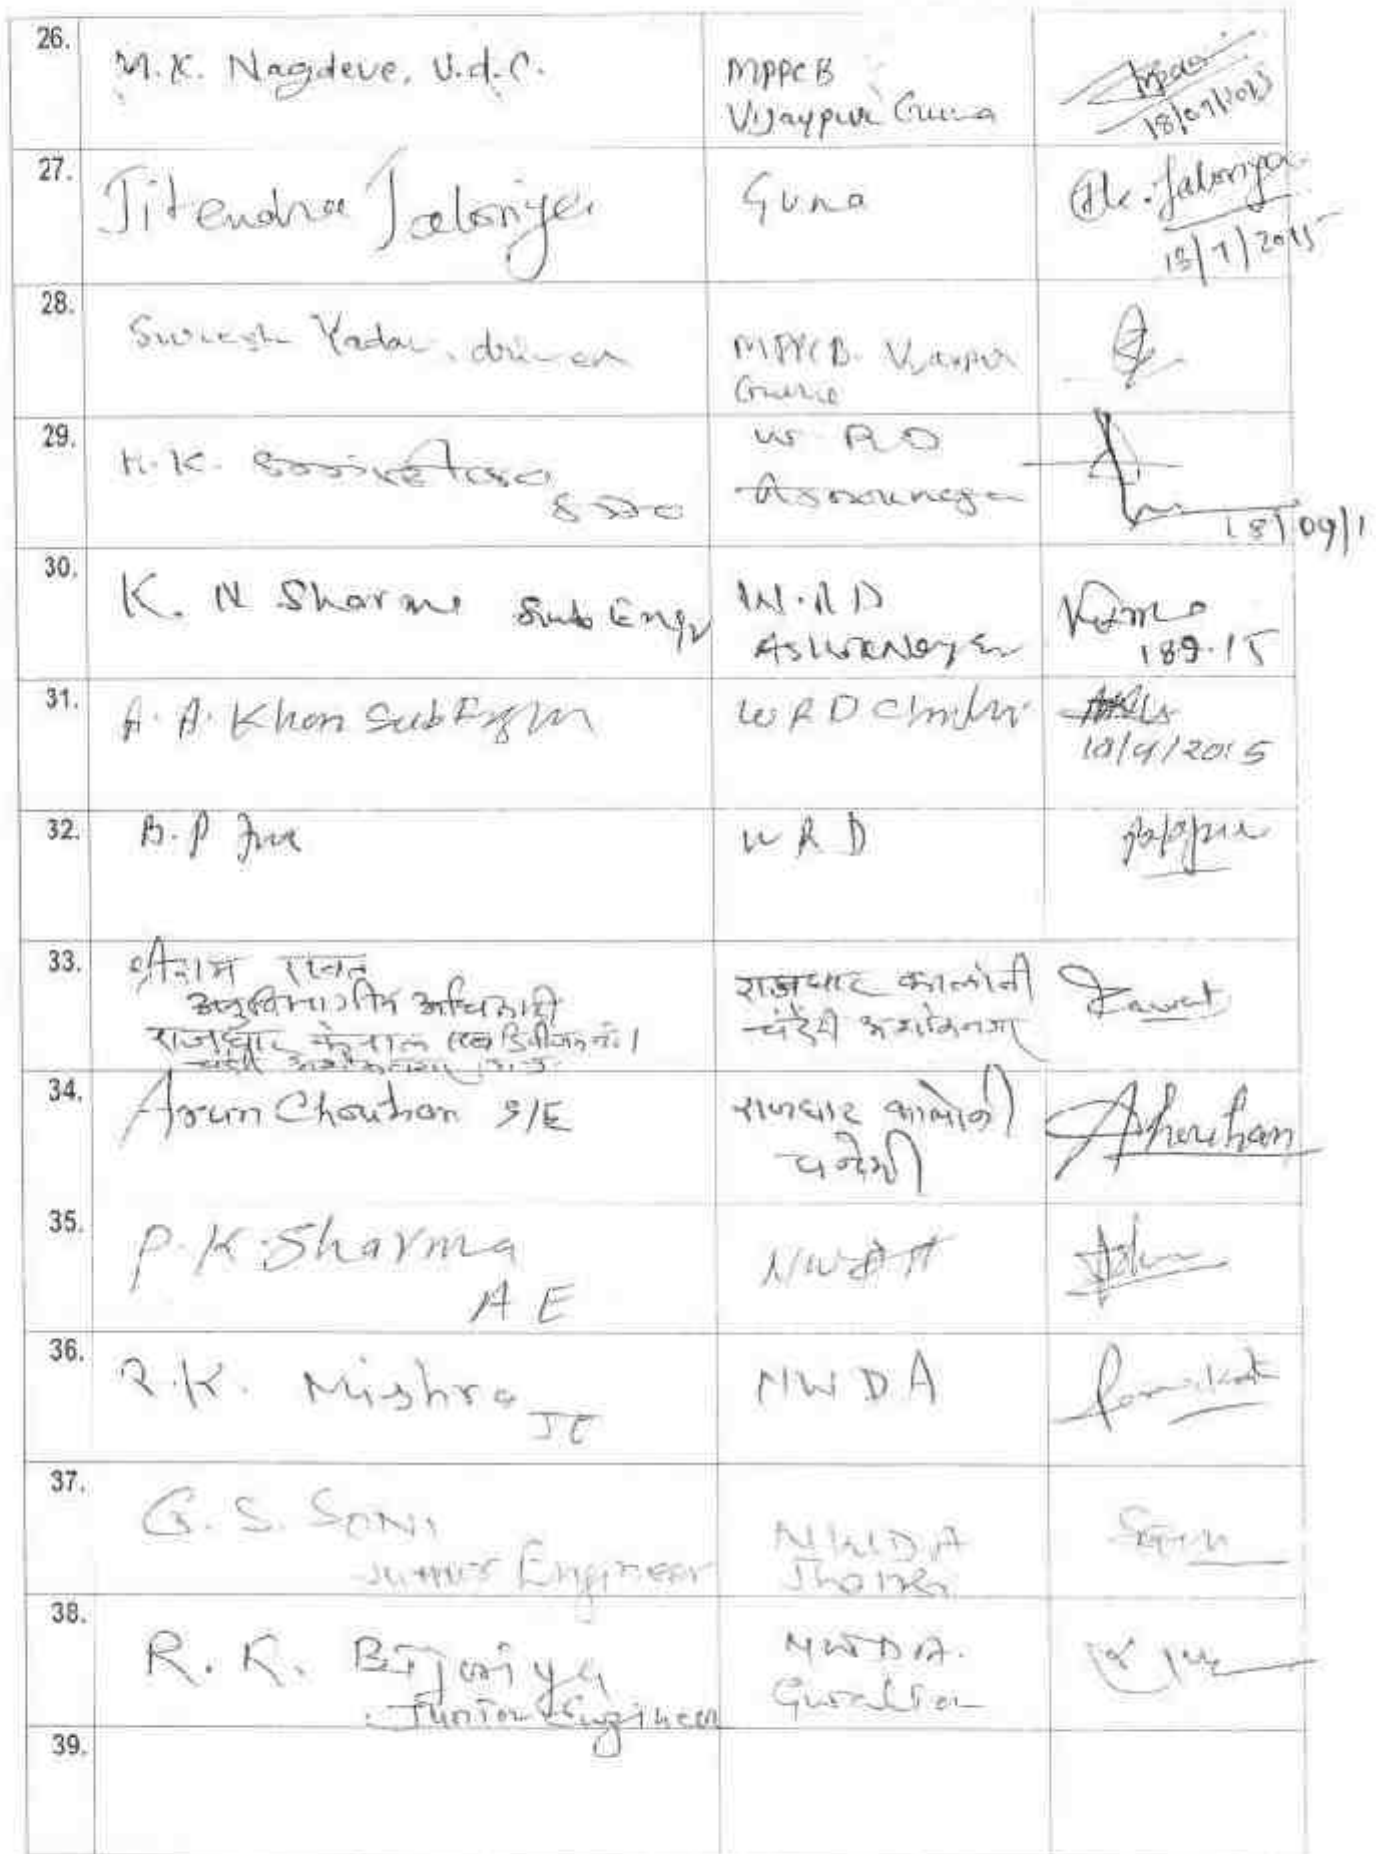 26.
M.K. Nagdeve, U.d.C.
MPPCB
Vijaypur Guna
27.
Jitendra Jaloniya
Guna
Jk. Jaloniya
18/9/2015
28.
Suresh Yadav, driver
MPPCB Vijaypur
Guna
29.
SDO
W R D
Ashoknagar
18/09/1
30.
K. N Sharma Sub Engr
W.R.D
AshokNagar
189.15
31.
A. A. Khan Sub Engr
W R D
18/9/2015
32.
B. P
W R D
33.
रावत
अनुविभागीय अधिकारी
राजघाट केनाल
राजघाट कालोनी
चंदेरी अशोकनगर
Rawat
34.
Arun Chouhan S/E
राजघाट कालोनी
चन्देरी
AChouhan
35.
P. K. Sharma
A E
NWDA
36.
R. K. Mishra
JE
NWDA
37.
G. S. SONI
Junior Engineer
NWDA
Jhansi
38.
R. K.
Junior Engineer
NWDA.
Gwalior
39.